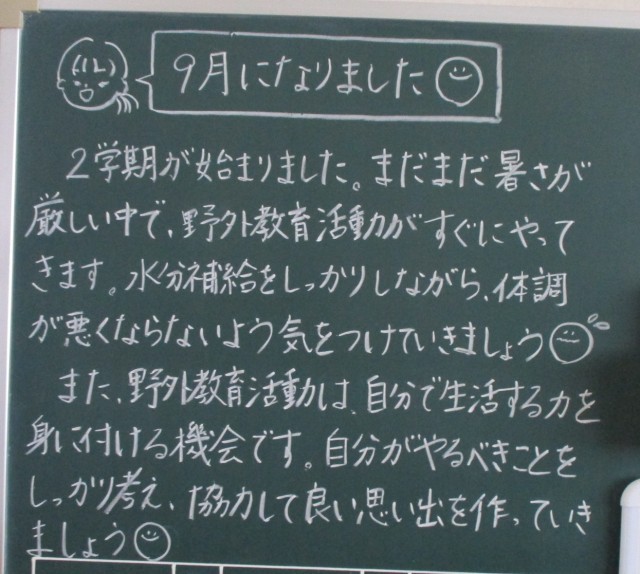 9月になりました
2学期が始まりました。まだまだ暑さが
厳しい中で、野外教育活動がすぐにやって
きます。水分補給をしっかりしながら、体調
が悪くならないよう気をつけていきましょう
また、野外教育活動は、自分で生活する力を
身に付ける機会です。自分がやるべきことを
しっかり考え、協力して良い思い出を作っていき
ましょう